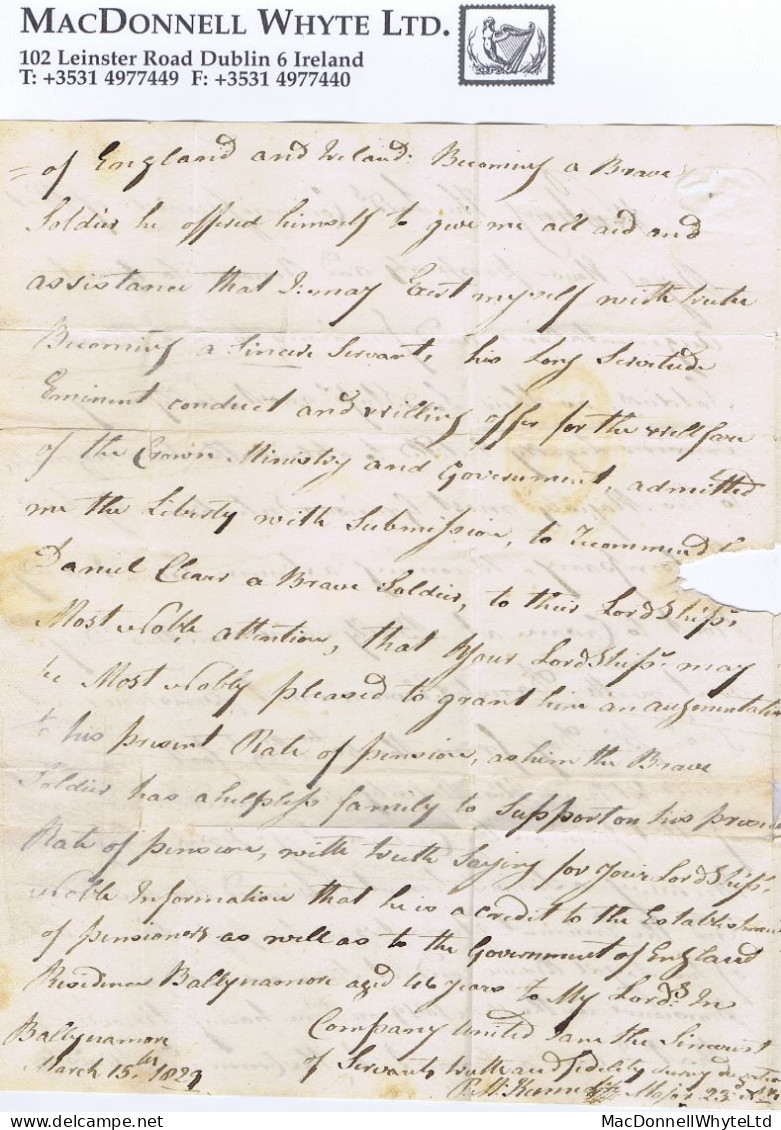 MACDONNELL WHYTE LTD.
102 Leinster Road Dublin 6 Ireland
T: +3531 4977449 F: +3531 4977440
= of England and Ireland. Becoming a Brave
Soldier he offered himself to give me all aid and
assistance that I may Exert myself with truth
Becoming a Sincere Servant, his Long Servitude
Eminent conduct and willing offer for the wellfare
of the Crown Ministry and Government, admitted
me the Liberty with Submission, to recommend
Daniel Clears a Brave Soldier, to their LordShips
Most Noble attention, that Your LordShips may
be Most Nobly pleased to grant him an augmentation
to his present Rate of pension, as him the Brave
Soldier has a helpless family to Support on his present
Rate of pension, with truth Saying for Your LordShips
Noble Information that he is a credit to the Establishment
of pensioners as well as to the Government of England
Residence Ballynamore aged 46 years to My Lords In
Company United I am the Sincerest
Ballynamore
of Servants truth and fidelity during
March 15th 1829
Major 23
© MacDonnellWhyteLtd
www.delcampe.net
MacDonnellWhyteLtd